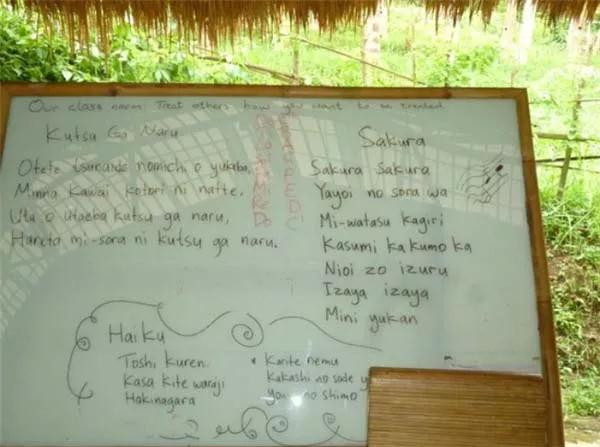 Our class norm: Treat others how you want to be treated
Kutsu Ga Naru
Otete tsunaide nomichi o yukeba,
Minna kawai kotori ni natte,
Uta o utaeba kutsu ga naru,
Hareta mi-sora ni kutsu ga naru.
Sakura
Sakura Sakura
Yayoi no sora wa
Mi-watasu kagiri
Kasumi ka kumo ka
Nioi zo izuru
Izaya izaya
Mini yukan
Haiku
Toshi kuren
Kasa kite waraji
Hakinagara
* Karite nemu
Kakashi no sode y
no shimo